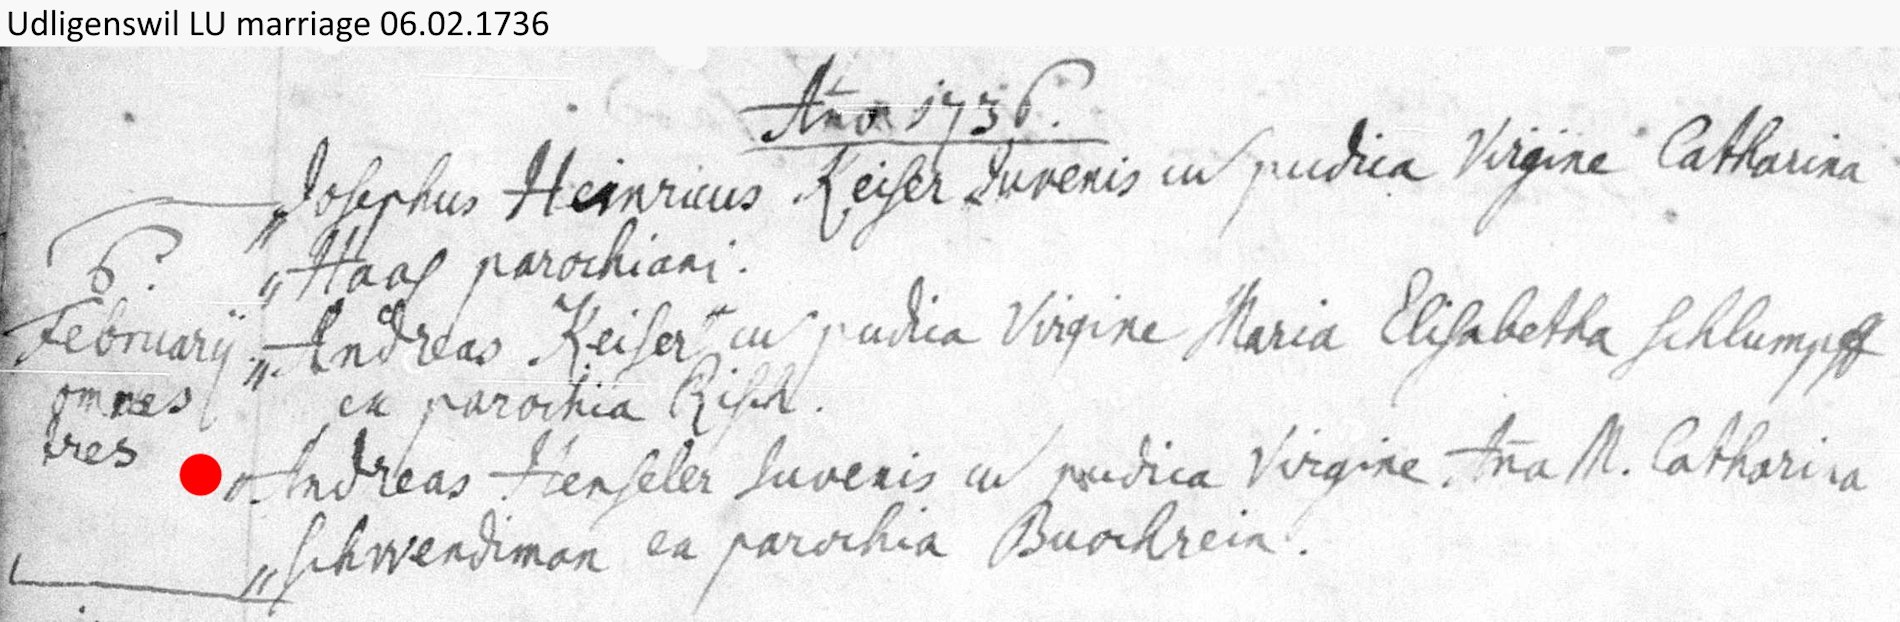 Udligenswil LU marriage 06.02.1736
Año 1736.
Josephus Heinricus Keiser Juvenis cu pudica Virgine Catharina
"Haas parochiani.
6.
Februarÿ
omnes
tres
"Andreas Keiser cu pudica Virgine Maria Elisabetha Schlumpff
ex parochia Risch.
Andreas Henseler Juvenis cu pudica Virgine Aña M. Catharina
"Schwendiman ex parochia Buochrein.